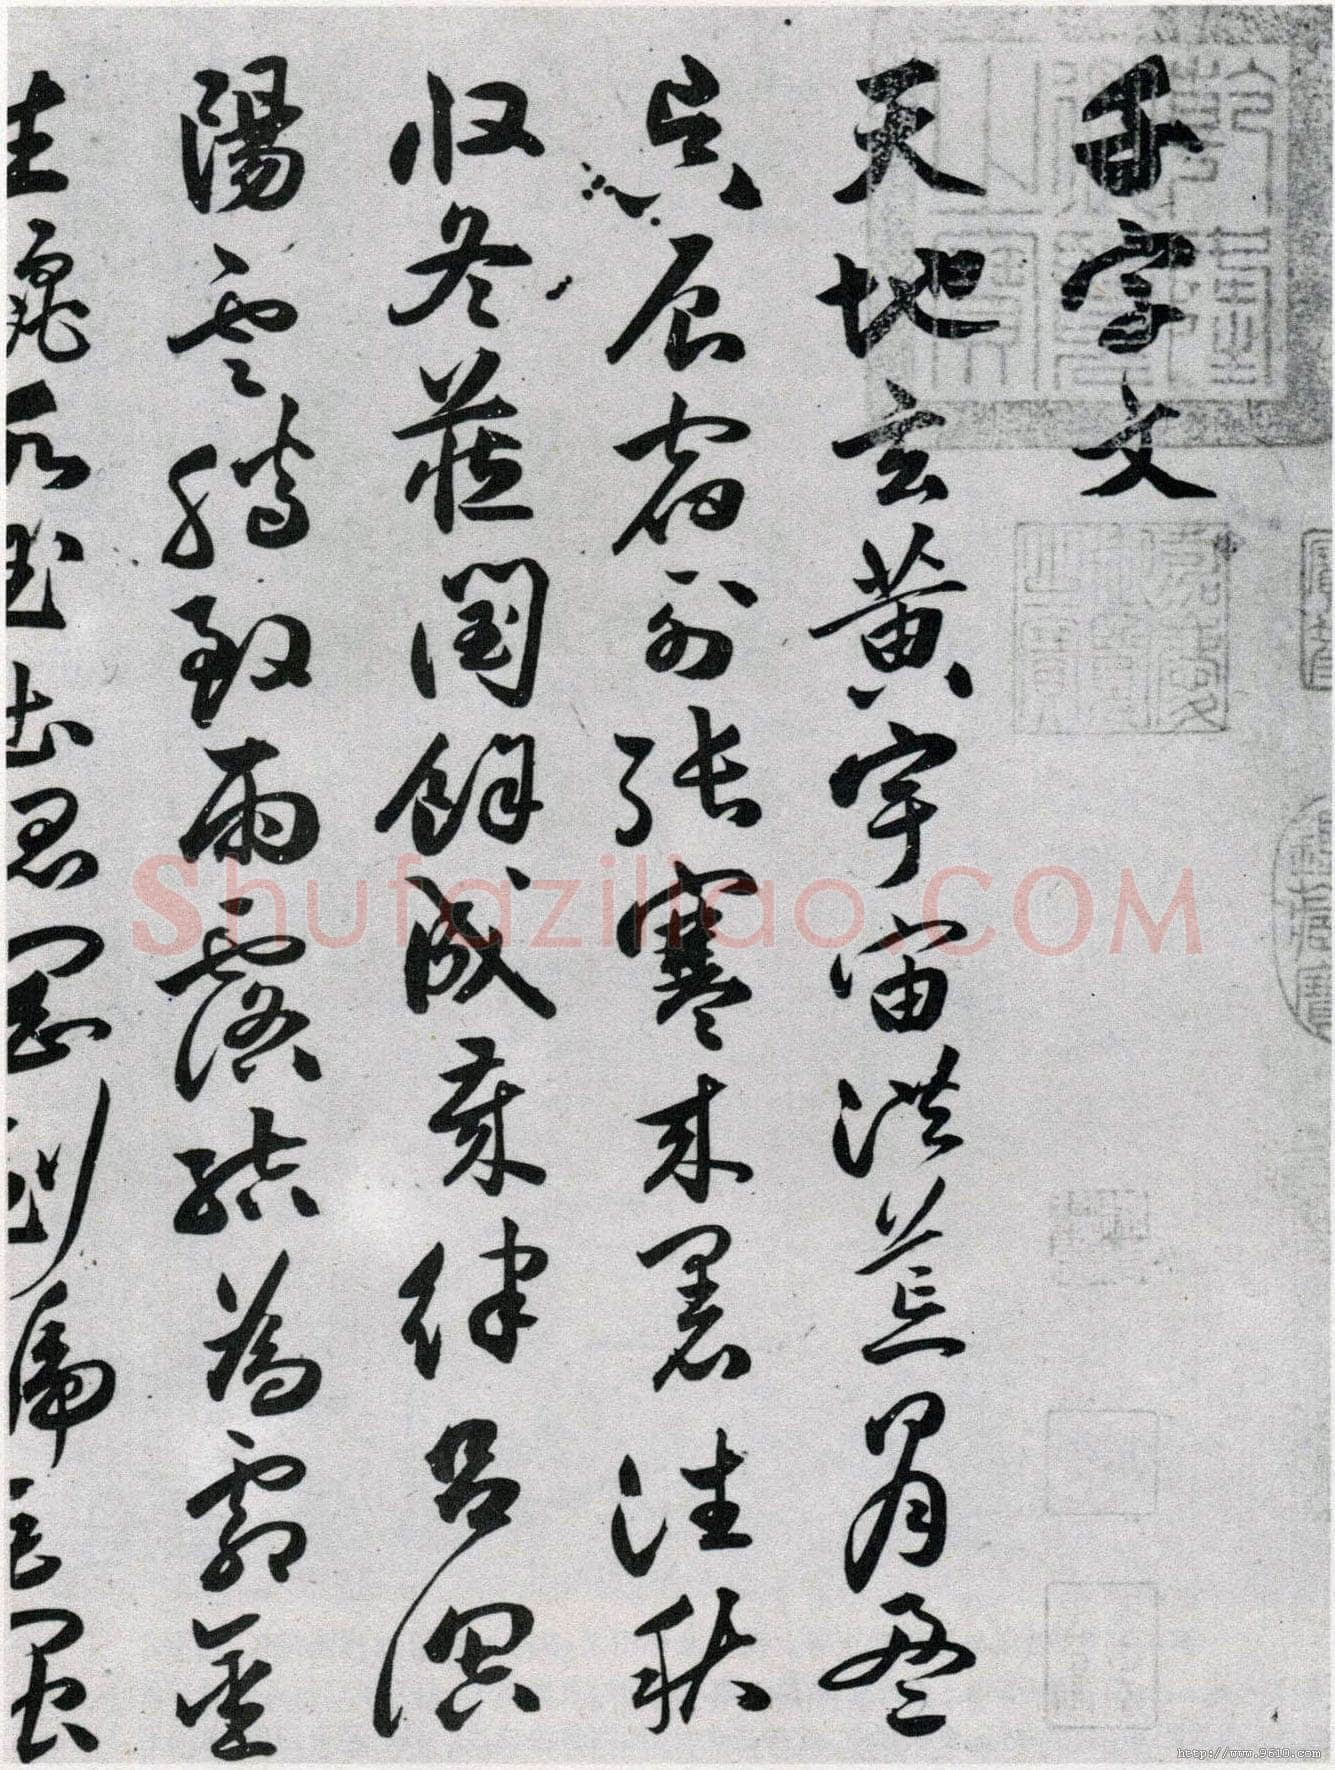 千字文
天地玄黄宇宙洪荒日月盈
昃辰宿列張寒来暑往秋
收冬蔵閏餘成歲律呂調
陽雲騰致雨露結為霜金
生麗水玉出崑岡劍號巨闕
Shufaziliao.COM
http://www.9610.com